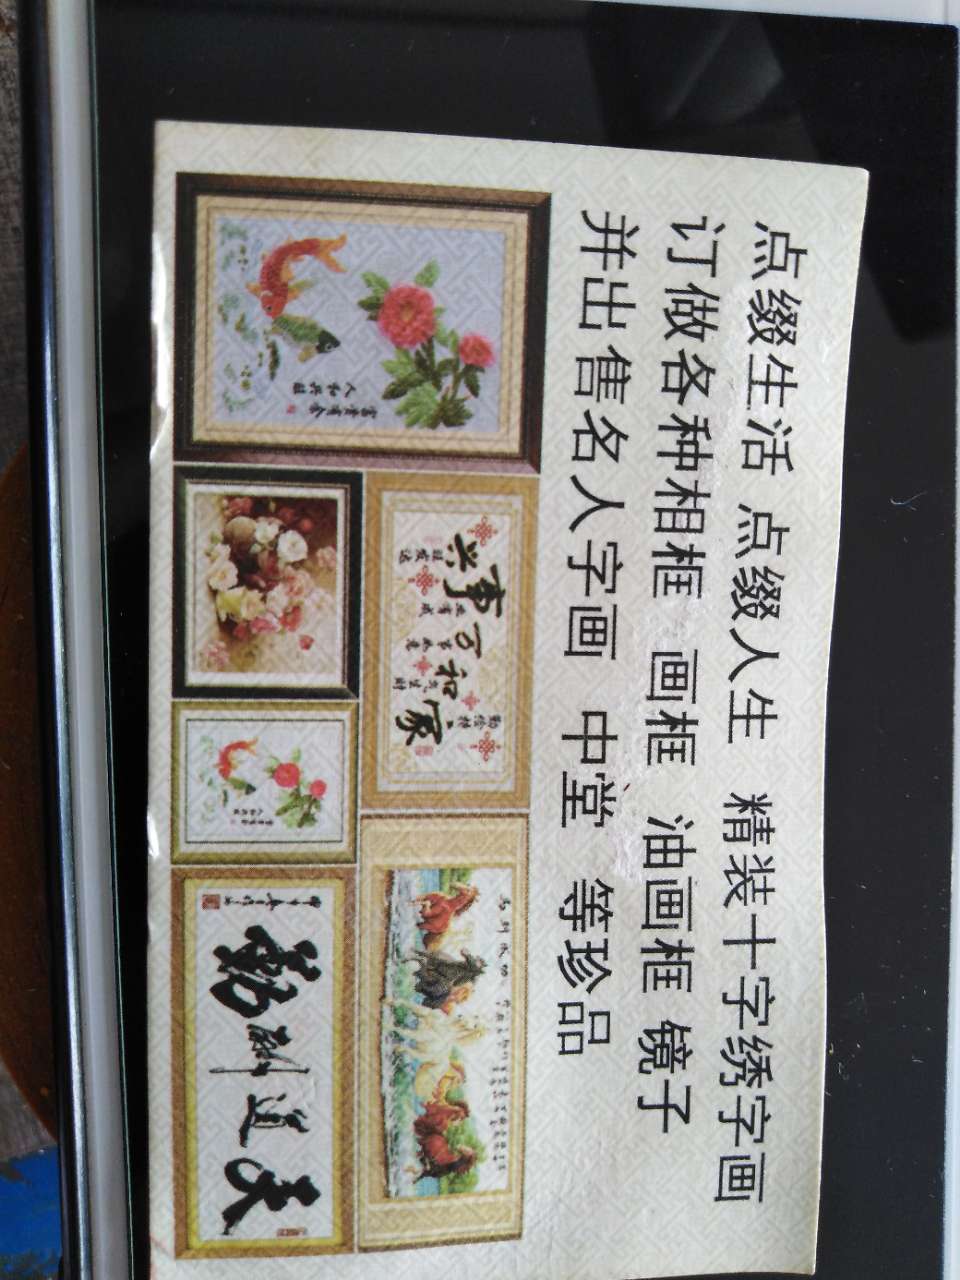 点缀生活 点缀人生 精装十字绣字画
订做各种相框 画框 油画框 镜子
并出售名人字画 中堂 等珍品
富贵有余
人和共旺
家和万事兴
马到成功
天道酬勤